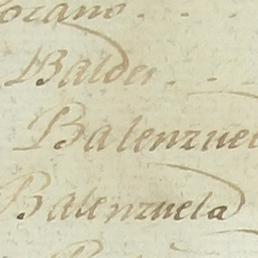 Balder
Balenzuel
Balenzuela